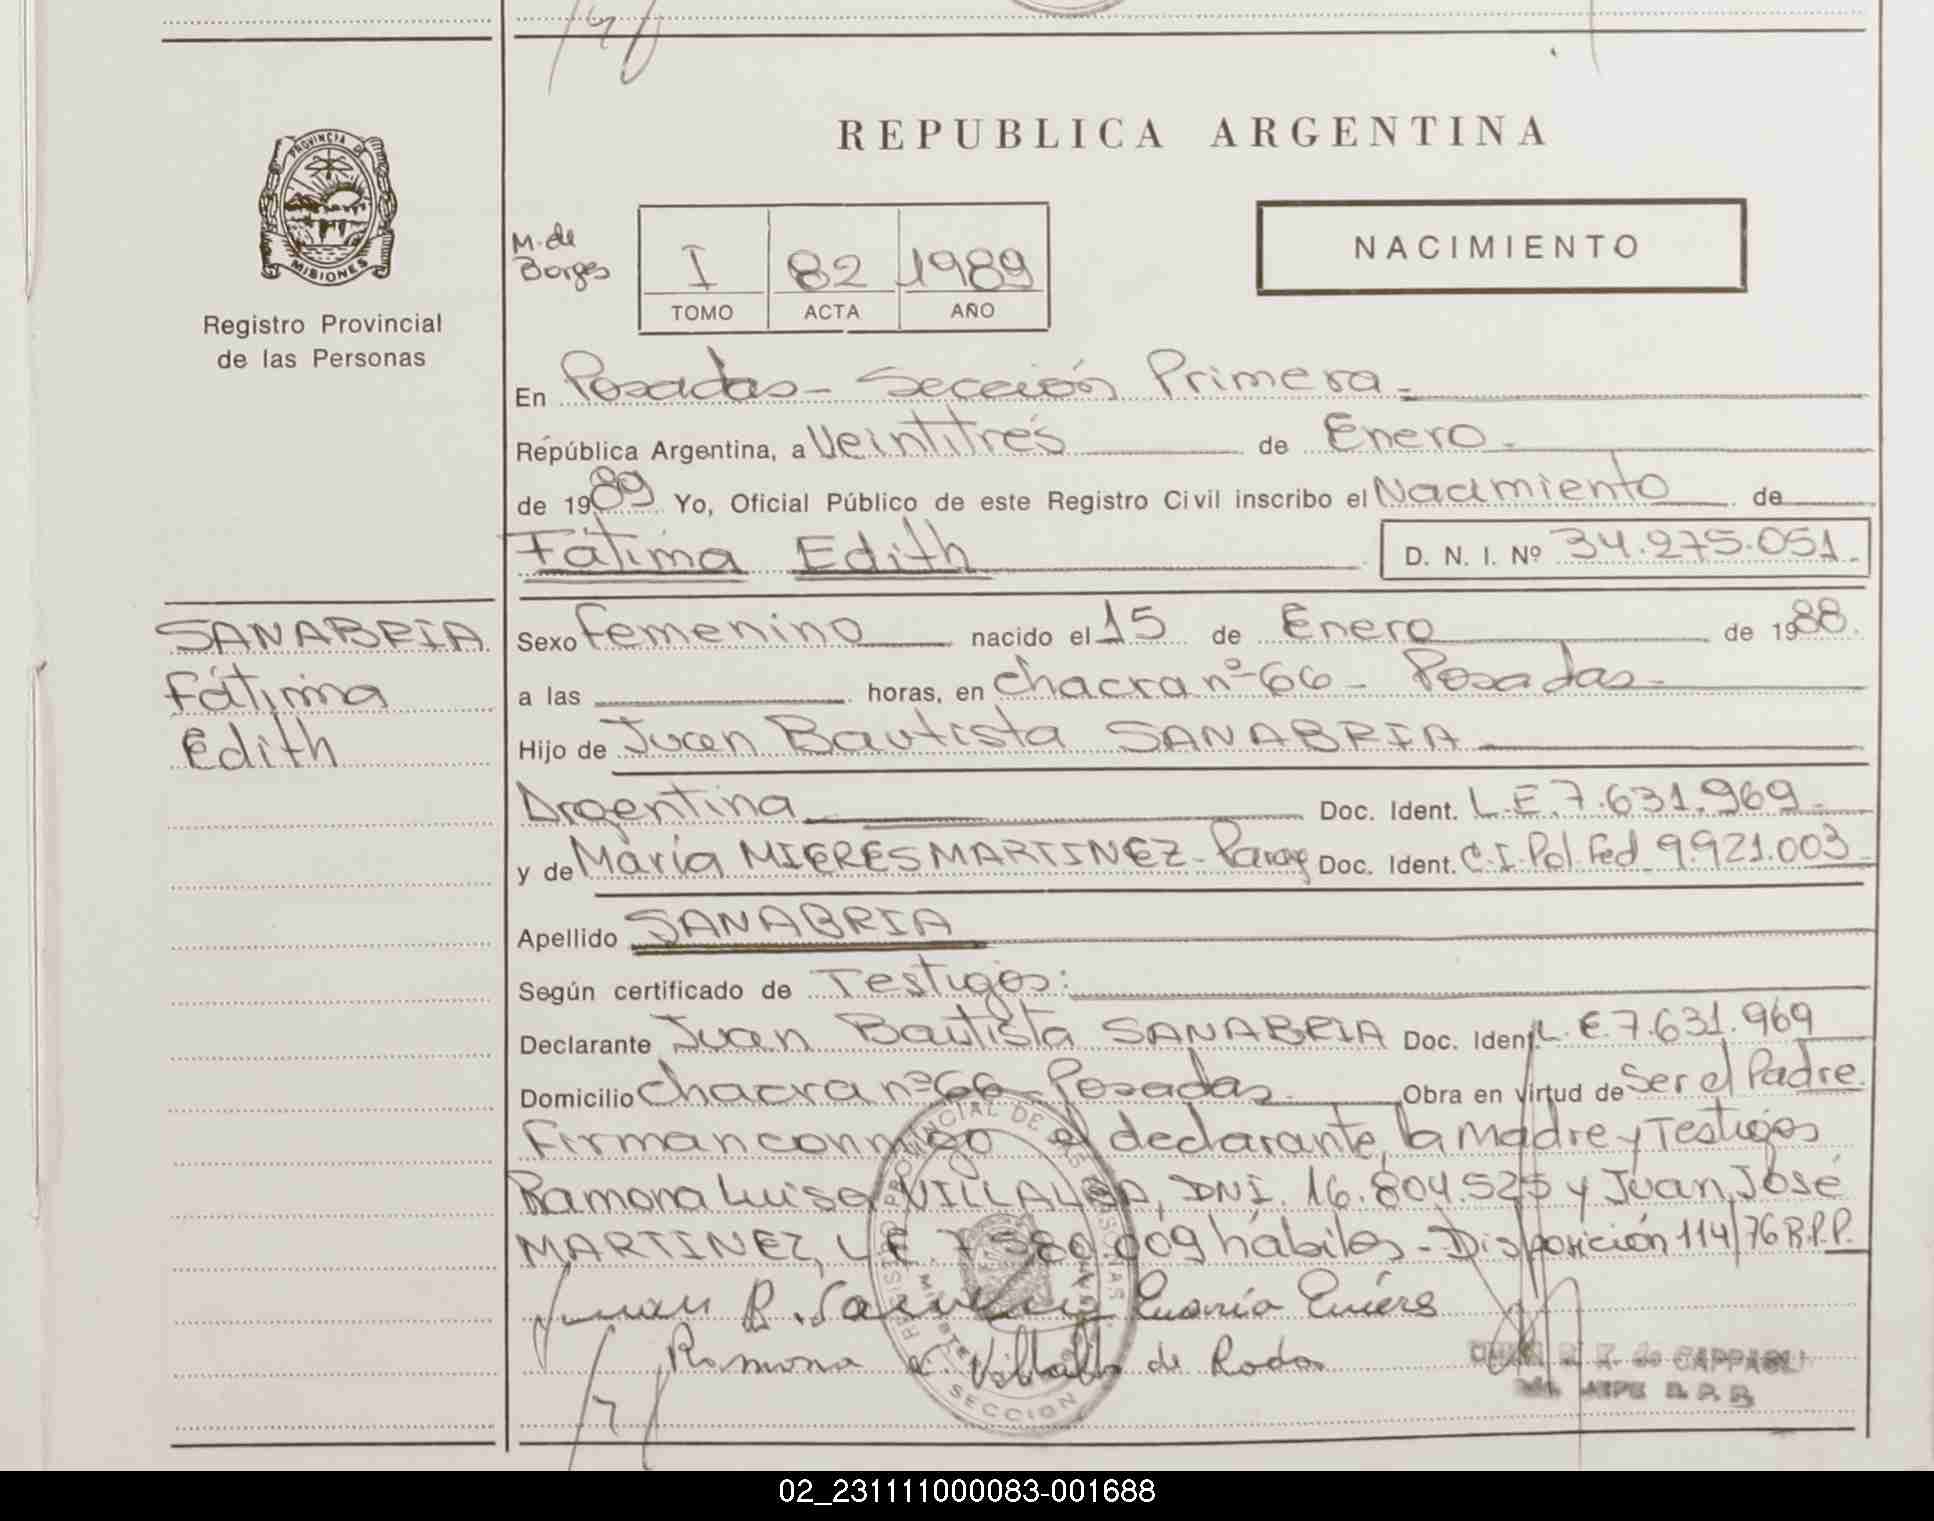 REPUBLICA ARGENTINA
PROVINCIA DE
MISIONES
Registro Provincial
de las Personas
M. de
Borges
I 82 1989
TOMO ACTA AÑO
NACIMIENTO
En Posadas - Sección Primera.
República Argentina, a Veintitrés de Enero.
de 1989 Yo, Oficial Público de este Registro Civil inscribo el Nacimiento de
Fátima Edith D. N. I. Nº 34.275.051.
SANABRIA
Fátima
Edith
Sexo Femenino nacido el 15 de Enero de 1988.
a las horas, en Chacra nº 66 - Posadas.
Hijo de Juan Bautista SANABRIA
Argentina Doc. Ident. L.E. 7.631.969.
y de María MIERES MARTINEZ - Parag Doc. Ident. C.I. Pol. Fed 9.921.003
Apellido SANABRIA
Según certificado de Testigos:
Declarante Juan Bautista SANABRIA Doc. Ident. L.E. 7.631.969
Domicilio Chacra nº 66 - Posadas. Obra en virtud de Ser el Padre.
Firman conmigo el declarante, la Madre y Testigos
Ramona Luisa VILLALBA, DNI. 16.804.525 y Juan José
MARTINEZ, L.E. 7.580.009 hábiles - Disposición 114/76 R.P.P.
Juan B. Sanabria María
Ramona L. Villalba de Rodas
SECCION
02_231111000083-001688